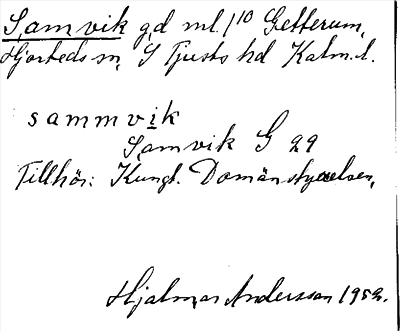 Samvik gd ml. 1/10 Getterum,
Hjorteds sn, S Tjusts hd Kalm. l.
sammvik
Samvik G 29
Tillhör: Kungl. Domänstyrelsen,
Hjalmar Andersson 1952.